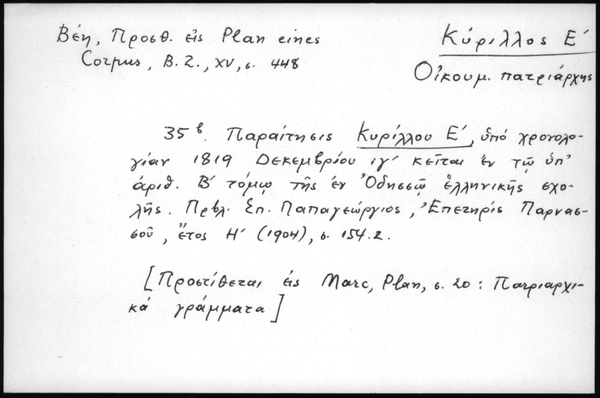 Βέη, Προσθ. εἰς Plan eines
Corpus, B.Z., XV, σ. 448
Κύριλλος Ε′
Οἰκουμ. πατριάρχης
35β Παραίτησις Κυρίλλου Ε′, ὑπό χρονολο-
γίαν 1819 Δεκεμβρίου ιγ′ κεῖται ἐν τῷ ὑπ'
ἀριθ. Β′ τόμῳ τῆς ἐν Ὀδησσῷ ἑλληνικῆς σχο-
λῆς. Πρβλ. Σπ. Παπαγεώργιος, Ἐπετηρίς Παρνασ-
σοῦ, ἔτος Η′ (1904), σ. 154.2.
[Προστίθεται εἰς Marc, Plan, σ. 20: Πατριαρχι-
κά γράμματα]